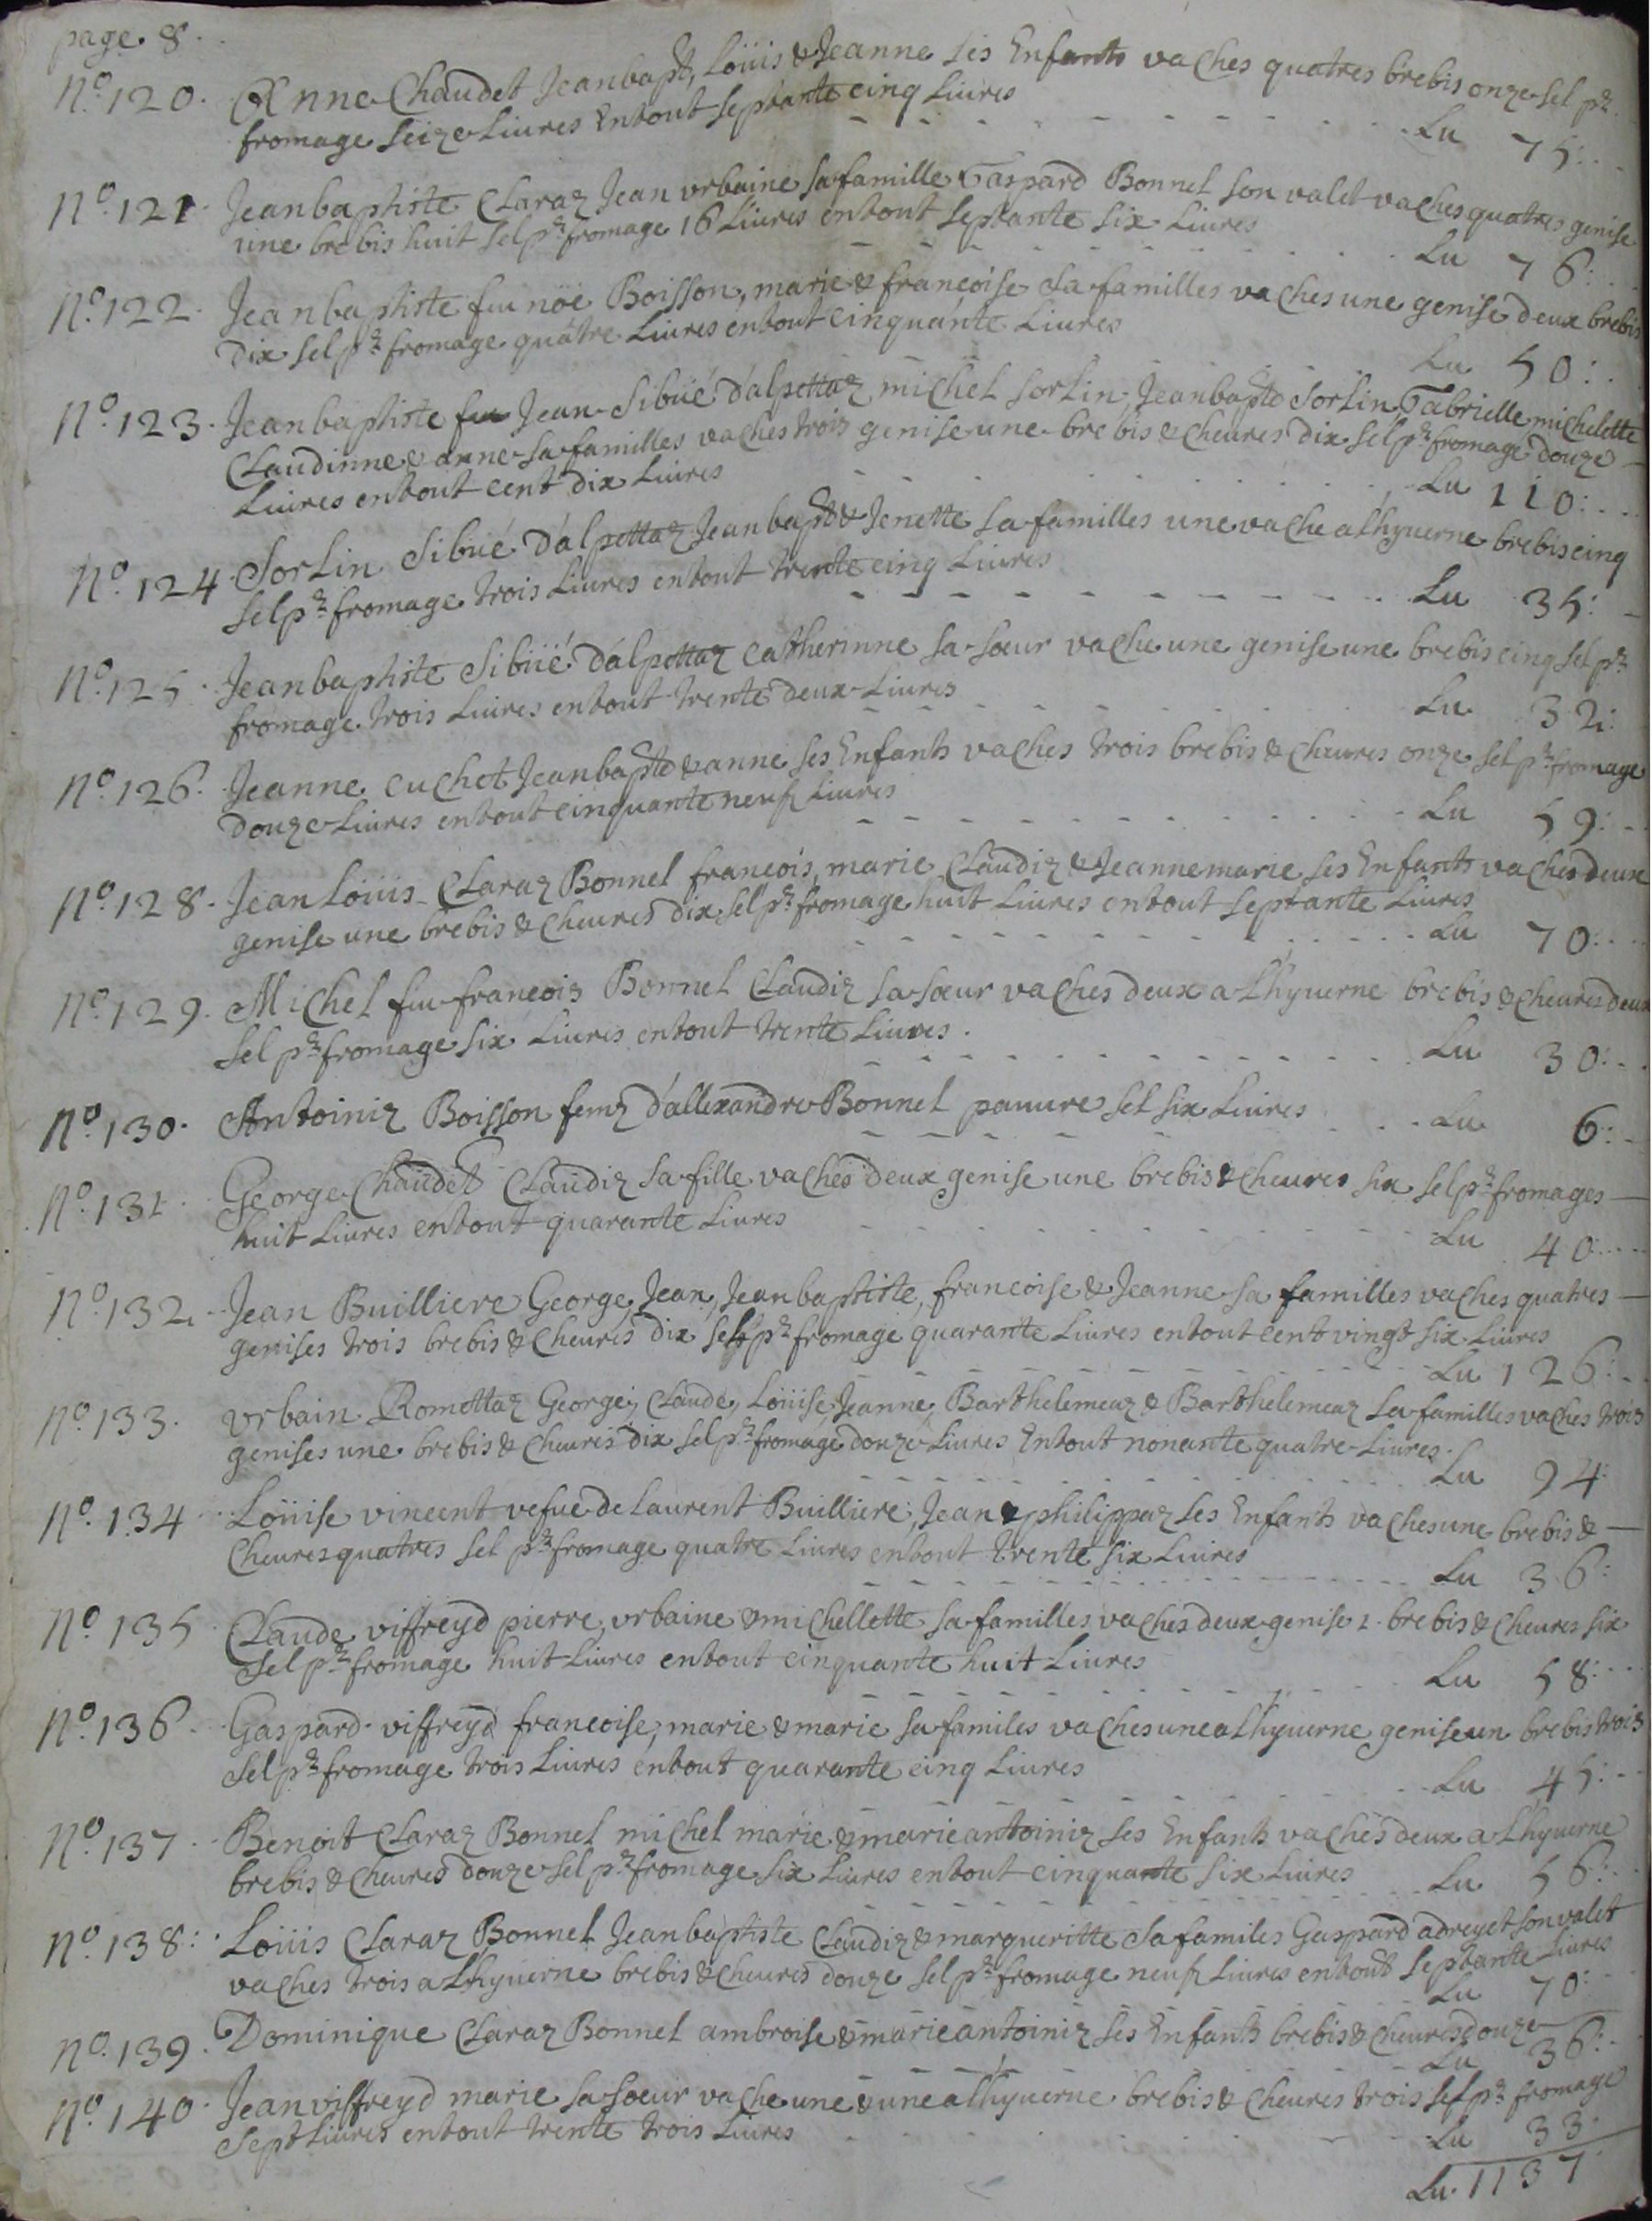 page 8.
No. 120. Anne Chaudet Jeanbapt, Loüis & Jeanne ses Enfants vaches quatres brebis onze sel pr
fromage seize Liures Entout septante cinq Liures
Lu 75:
No. 121. Jeanbaptiste Claraz Jean vrbaine sa famille Gaspard Bonnel son valet vaches quatres genise
vne brebis huit sel pr fromage 16 Liures entout septante six Liures
Lu 76:
No. 122. Jeanbaptiste fui noé Boisson, marie & francoise sa familles vaches une genise deux brebis
dix sel pr fromage quatre Liures entout cinquante Liures
Lu 50:
No. 123. Jeanbaptiste fui Jean Sibüé dalpettaz michel sorlin Jeanbapte sorlin, Gabrielle michelette
Claudinne & anne sa familles vaches trois genise une brebis & cheures dix sel pr fromage douze
Liures entout cent dix Liures
Lu 110:
No. 124 Sorlin Sibüé d'alpettaz Jeanbapt & Jenette sa familles une vache a Lhyuerne brebis cinq
sel pr fromage trois Liures entout trente cinq Liures
Lu 35:
No. 125. Jeanbaptiste Sibüé dalpettaz catherinne sa sœur vache une genise une brebis cinq sel pr
fromage trois Liures entout trente deux Liures
Lu 32:
No. 126. Jeanne cuchet Jeanbapte & anne ses Enfants vaches trois brebis & cheures onze sel pr fromage
douze Liures entout cinquante neuf Liures
Lu 59:
No. 128. Jean Loüis Claraz Bonnel francois, marie Claudiz & Jeannemarie ses Enfants vaches deux
genise une brebis & cheures dix sel pr fromage huit Liures entout septante Liures
Lu 70:
No. 129. Michel fui francois Bonnel Claudiz sa sœur vaches deux a Lhyuerne brebis & cheures deux
sel pr fromage six Liures entout trente Liures.
Lu 30:
No. 130. Antoiniz Boisson femz d'allexandre Bonnel pauure sel six Liures Lu 6:
No. 131. George Chaudet Claudiz sa fille vaches deux genise une brebis & cheures six sel pr fromages
huit Liures entout quarante Liures
Lu 40:
No. 132. Jean Builliere George, Jean, Jeanbaptiste, francoise & Jeanne sa familles vaches quatres
genises trois brebis & cheures dix sel pr fromage quarante Liures entout cent vingt six Liures
Lu 126:
No. 133. vrbain Romettaz George, Claude, Loüise, Jeanne, Barthelemeaz & Barthelemeaz sa familles vaches trois
genises une brebis & cheures dix sel pr fromage douze Liures Entout nonante quatre Liures.
Lu 94:
No. 134 Loüise vincent vefue de Laurent Builliere, Jean & philippaz ses Enfants vaches une brebis &
Cheures quatres sel pr fromage quatre Liures entout trente six Liures
Lu 36:
No. 135 Claude viffreyd pierre, vrbaine & michellette sa familles vaches deux genise 1. brebis & cheures six
sel pr fromage huit Liures entout cinquante huit Liures
Lu 58:
No. 136. Gaspard viffreyd francoise, marie & marie sa familes vaches une a Lhyuerne genise un brebis trois
sel pr fromage trois Liures entout quarante cinq Liures
Lu 45:
No. 137 Benoit Claraz Bonnel michel marie & marieantoiniz ses Enfants vaches deux a Lhyuerne
brebis & cheures douze sel pr fromage six Liures entout cinquante six Liures
Lu 56:
No. 138: Loüis Claraz Bonnel Jeanbaptiste Claudiz & margueritte sa familes Gaspard adreyet son valet
vaches trois a Lhyuerne brebis & cheures douze sel pr fromage neuf Liures entout septante Liures
Lu 70:
No. 139. Dominique Claraz Bonnel ambroise & marieantoiniz ses Enfants brebis & cheures douze
Lu 36:
No. 140. Jean viffreyd marie sa sœur vache une & une a lhyuerne brebis & cheures trois sel pr fromage
sept Liures entout trente trois Liures
Lu 33
Lu. 1137